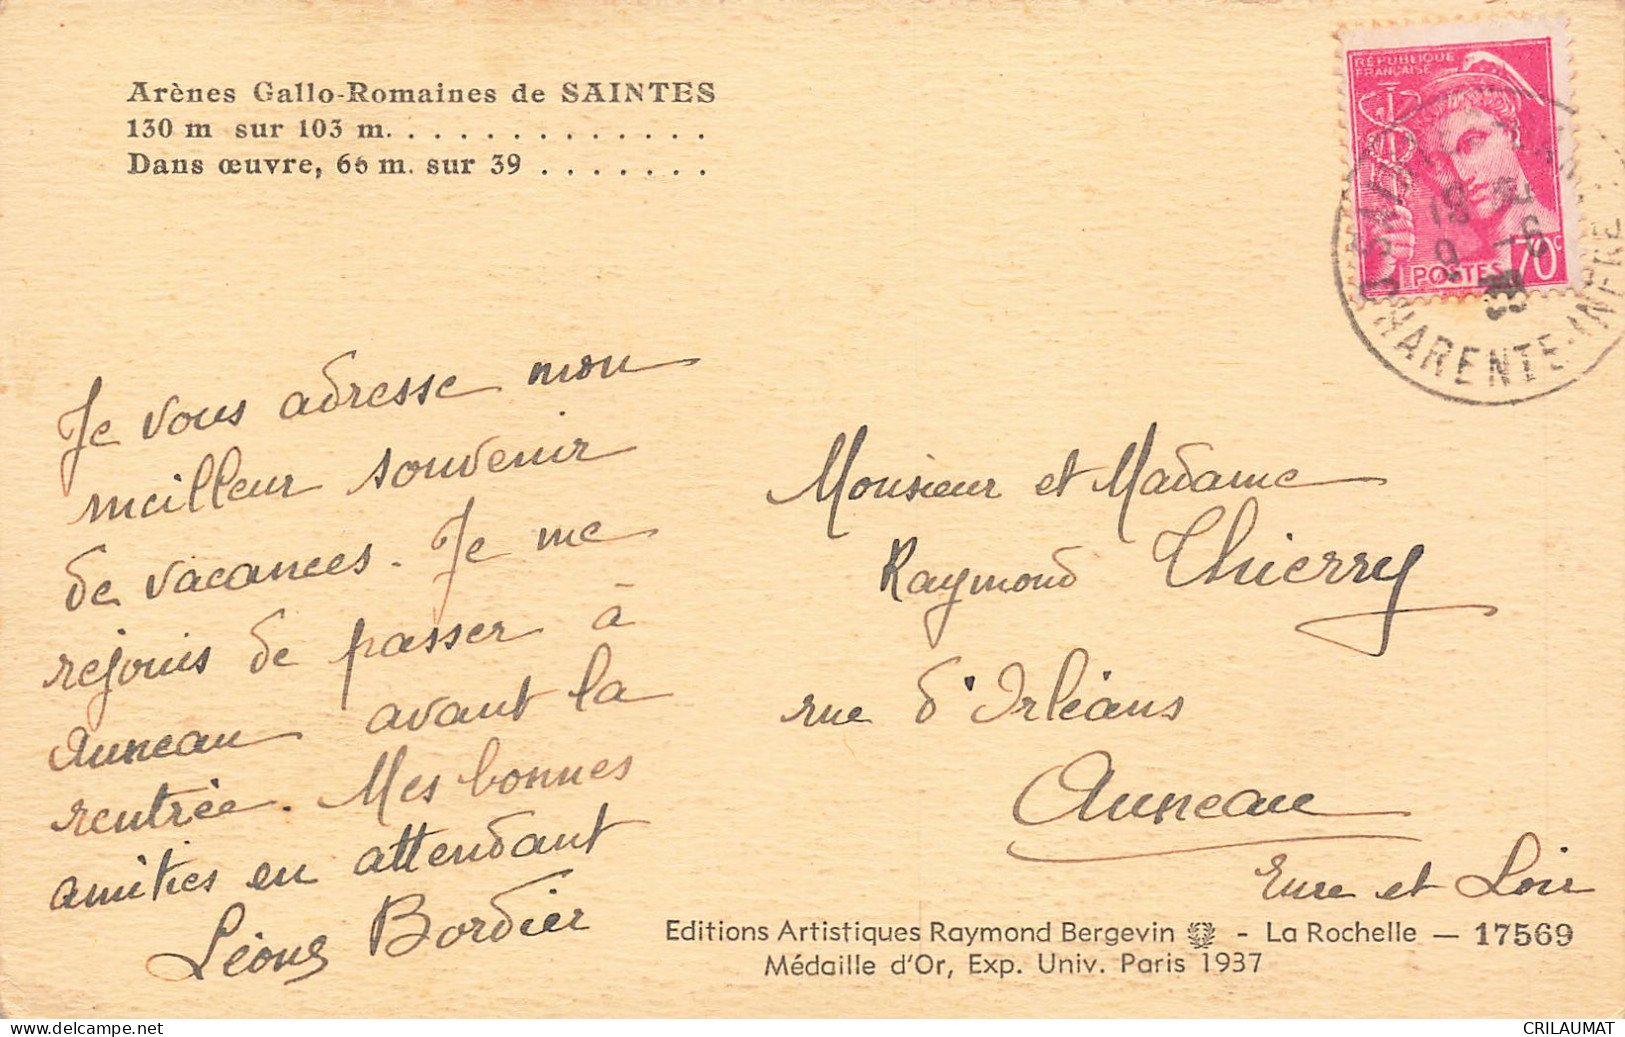 Arènes Gallo-Romaines de SAINTES
130 m sur 103 m. . . . . . . . . . . . . .
Dans œuvre, 66 m. sur 39 . . . . . . .
RÉPUBLIQUE
FRANÇAISE
POSTES 70c
CHARENTE-INFRE
Je vous adresse mon
meilleur souvenir
de vacances. Je me
rejouis de passer à
Auneau avant la
rentrée. Mes bonnes
amitiés en attendant
Bordier
Monsieur et Madame
Raymond Thierry
rue d'Orléans
Auneau
Eure et Loir
Editions Artistiques Raymond Bergevin - La Rochelle — 17569
Médaille d'Or, Exp. Univ. Paris 1937
www.delcampe.net
CRILAUMAT